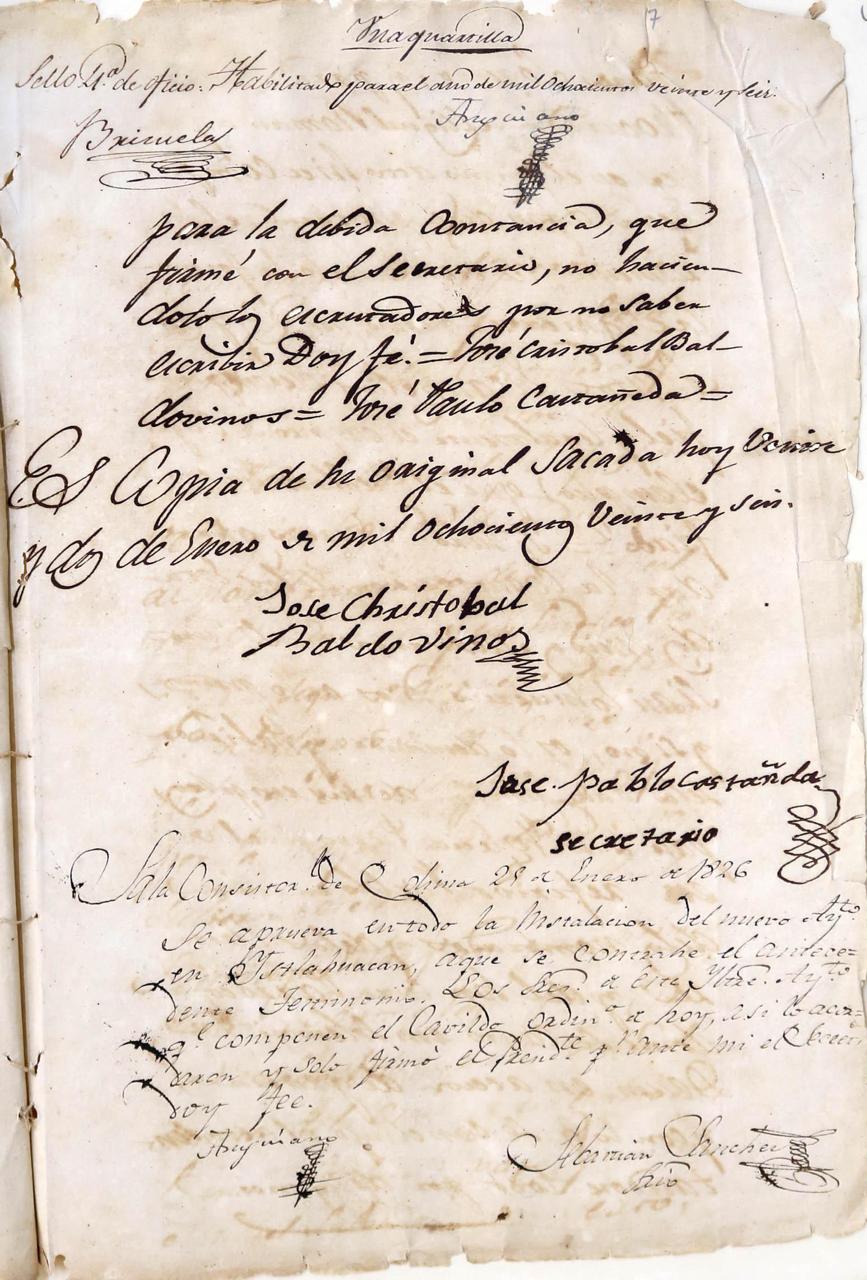 Una quartilla
17
Sello 4.º de oficio: Habilitado para el año de mil ochocientos veinte y seis.
Brizuela
Anguiano
para la debida Constancia, que
firmé con el Secretario, no hacien-
dolo los escrutadores por no saber
escribir Doy fé. = José Cristobal Bal-
dovinos = José Paulo Castañeda =
Es Copia de su original Sacada hoy Veinte
y dos de Enero de mil ochocientos Veinte y seis.
Jose Christobal
Baldovinos
Jose. pablo castañda
secretario
Sala Consistor.l de Colima 25 de Enero de 1826
Se aprueva en todo la Instalacion del nuevo Ay.to
en Istlahuacan, aque se contrahe el antece-
dente Testimonio. Los Sres. de este Yltre. Ay.to
q.e componen el Cavildo ordin.o de hoy, asi lo acor-
daron y solo firmó el Presid.te p.r ante mi el
doy fee.
Anguiano
Sebastian Sanchez
Srio